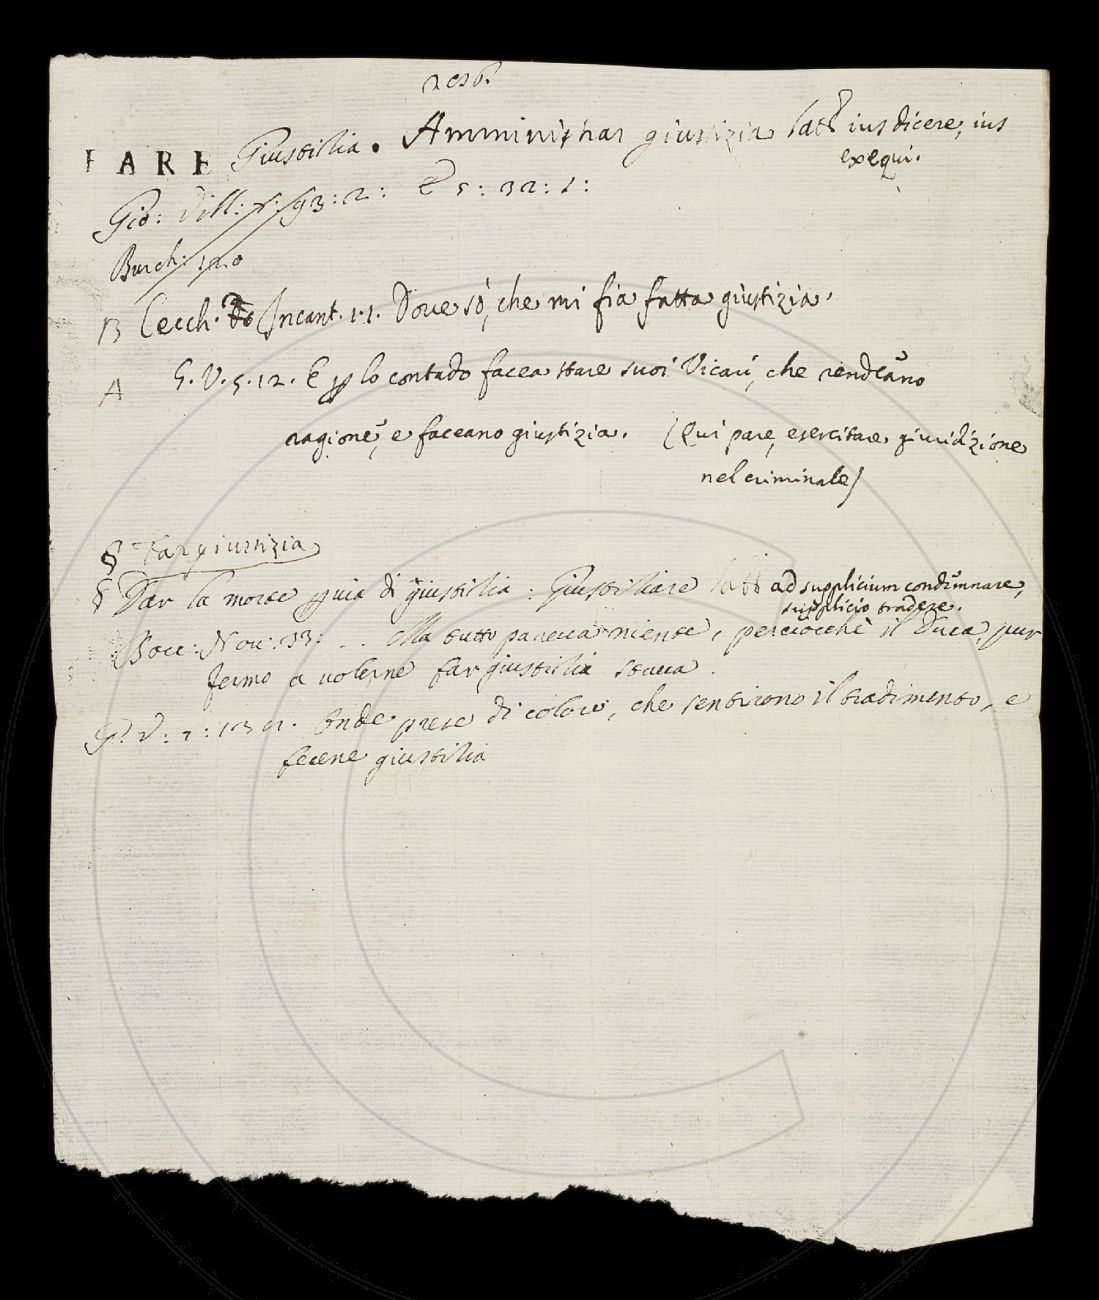 FARE Giustitia. Amministrar giustizia latt ius dicere, ius
exequi.
Gio: Vill: 93:2: E 5:32:1:
Burch: 120
B Cecch. Incant. 1.1. Dove sò, che mi fia fatta giustizia.
A G.V.5.12. E p lo contado facea stare suoi Vicarj, che rendeano
ragione, e faceano giustizia. (Qui pare, esercitare giuridizione
nel criminale)
§ Far giustizia
§ Dar la morte p via di giustitia: Giustitiare latt ad supplicium condemnare,
supplicio tradere.
Bocc: Nov: 33: .. Ma tutto pareva niente, perciocchè il Duca, pur
fermo a volerne far giustitia stava.
G. V: 7: Onde prese di coloro, che sentirono il tradimento, e
fecene giustitia